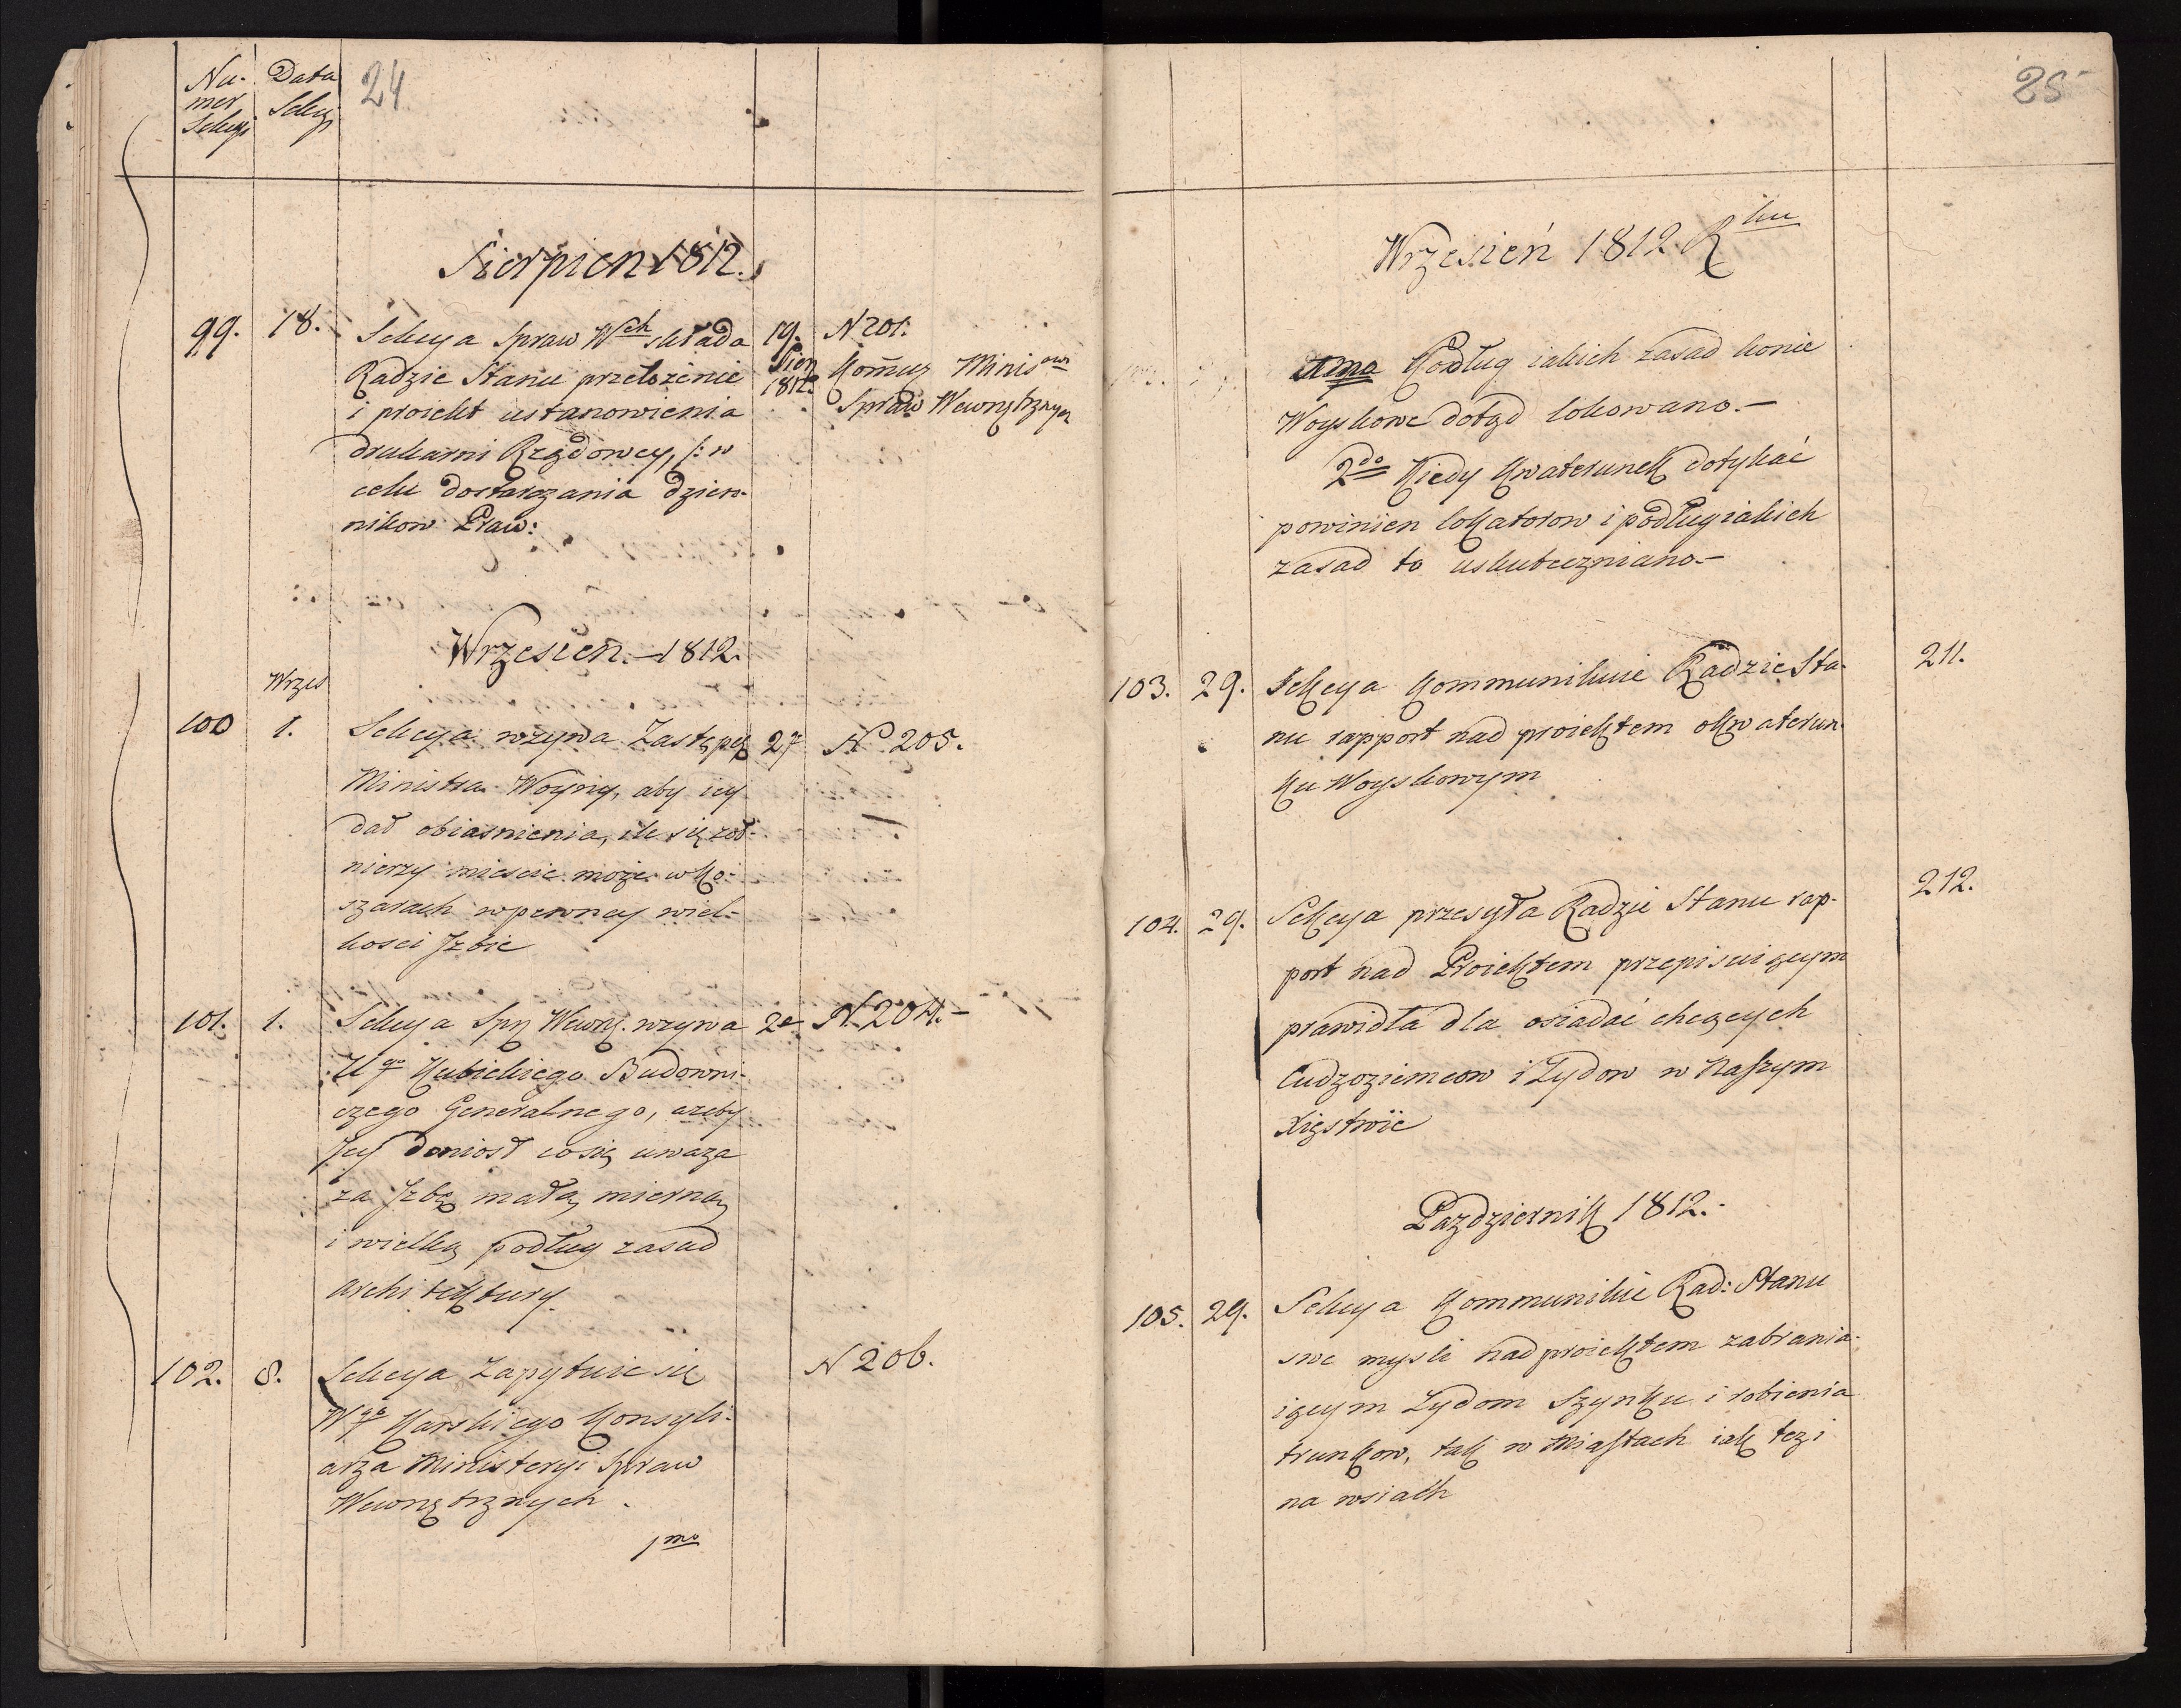 Nu-
mer
Sekcyi
Data
Sekcyi
24
Sierpien 1812.
99. 18. Sekcya Spraw Wch składa 19. N 201.
Radzie Stanu przełożenie Sier. Kom̄uz Minisowi
i proiekt ustanowienia 1812. Spraw Wewnętrznych
drukarni Rządowey, /: w
celu dostarczania dzien-
nikow Praw:
Wrzesien.- 1812.
Wrzes
100 1. Sekcya wzywa Zastępcę 27 N 205.
Ministra Woyny, aby iey
dał obiasnienia, ile się żoł-
nierzy miescic może w Ko-
szarach w pewney wiel-
kosci Jzbie
101. 1. Sekcya Spr Wewnę. wzywa N. 204.-
Ugo Kubickiego Budowni-
czego Generalnego, azeby
Jey doniosł co się uwaza
za Jzbę małą, mierną,
i wielką podług zasad
architektury.
102. 8. Sekcya Zapytuie się N 206.
Wgo Karskiego Konsyli-
arza Ministeryi Spraw
Wewnętrznych.
1mo
25
Wrzesień 1812 Rku
Podług iakich zasad konie
Woyskowe dotąd lokowano.-
2do Kiedy Kwaterunek dotykać
powinien lokatorow i podług iakich
zasad to uskuteczniano.-
103. 29. Sekcya Kommunikuie Radzie Sta- 211.
nu rapport nad proiektem o kwaterun-
ku Woyskowym
104. 29. Sekcya przesyła Radzie Stanu rap- 212.
port nad Proiektem przepisuiącym
prawidła dla osiadać chcących
Cudzoziemcow i Zydow w Naszym
Xięstwie
Pazdziernik 1812.-
105. 29. Sekcya Kommunikuie Rad: Stanu
swe mysli nad proiektem zabrania-
iącym Zydom Szynku i robienia
trunkow, tak w Miastach iak tez i
na wsiach